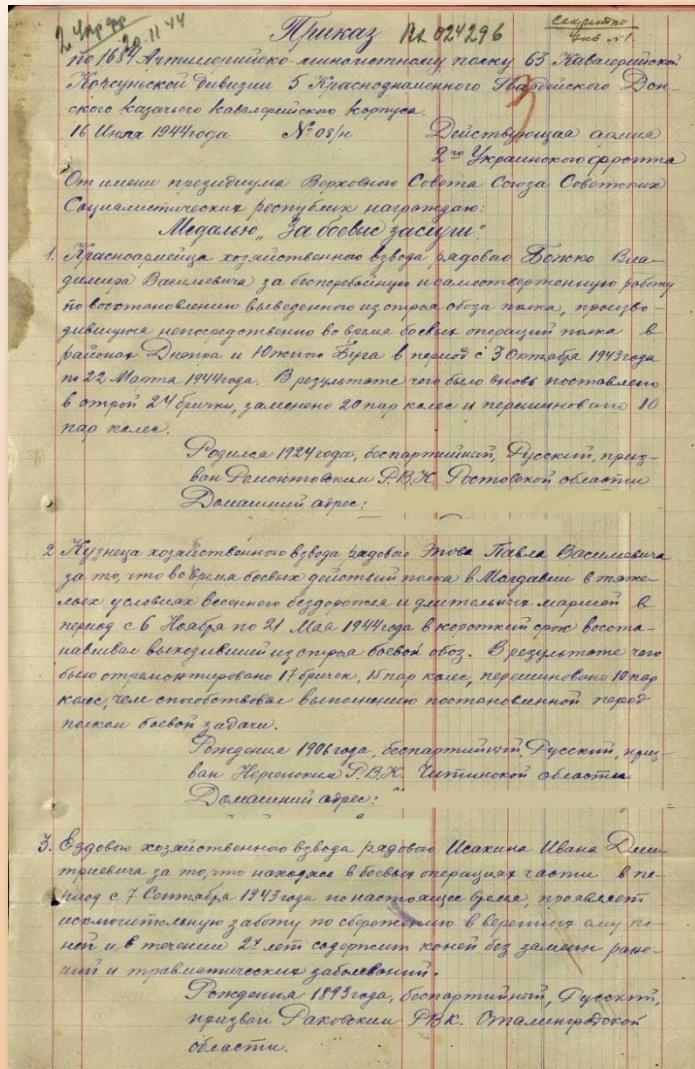 2 Укр фр
20.11.44
Приказ Вх 024296
Секретно
Экз №1.
по 1684 Артилерийско-минометному полку 63 Кавалерийской
Корсуньской дивизии 5 Краснознаменного Гвардейского Дон-
ского казачьего кавалерийского корпуса.
16 Июля 1944 года № 08/н Действующая армия
2го Украинского фронта
От имени президиума Верховного Совета Союза Советских
Социалистических республик награждаю:
Медалью „За боевые заслуги"
1. Красноармейца хозяйственного взвода рядового Божко Вла-
димира Васильевича за бесперебойную и самоотверженную работу
по восстановлению выведенного из строя обоза полка, произво-
дившуюся непосредственно во время боевых операций полка в
районах Днепра и Южного Буга в период с 3 Октября 1943 года
по 22 Марта 1944 года. В результате чего было вновь поставлено
в строй 24 брички, заменено 20 пар колес и перешиновано 10
пар колес.
Родился 1924 года, беспартийный, Русский, приз-
ван Ремонтовским Р.В.К. Ростовской области
Домашний адрес:
2 Кузнеца хозяйственного взвода рядового Эпова Павла Васильевича
за то, что во время боевых действий полка в Молдавии в тяже-
лых условиях весеннего бездорожья и длительных маршей в
период с 6 Ноября по 21 Мая 1944 года в короткий срок восста-
навливал выходивший из строя боевой обоз. В результате чего
было отремонтировано 17 бричек, 15 пар колес, перешиновано 10 пар
колес, чем способствовал выполнению поставленной перед
полком боевой задачи.
Рождения 1906 года, беспартийный, Русский, приз-
ван Р.В.К. Читинской области
Домашний адрес:
3. Ездового хозяйственного взвода рядового Исакина Ивана Дмит-
триевича за то, что находясь в боевых операциях части в пе-
риод с 7 Сентября 1943 года по настоящее время, проявляет
исключительную заботу по сбережению вверенных ему ко-
ней и в течении 2х лет содержит коней без замены ране-
ний и травматических заболеваний.
Рождения 1893 года, беспартийный, Русский,
призван Раковским РВК. Сталинградской
области.